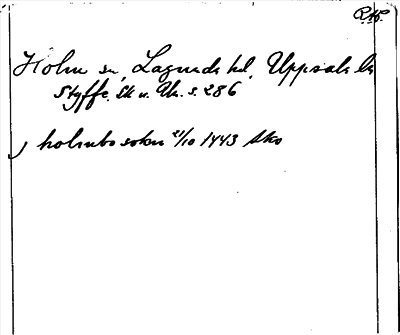 P.16.
Holm sn, Lagunda hd, Uppsala län
Styffe. Sk u. Un. s. 286
j holmbo sokn 21/10 1443 Sko